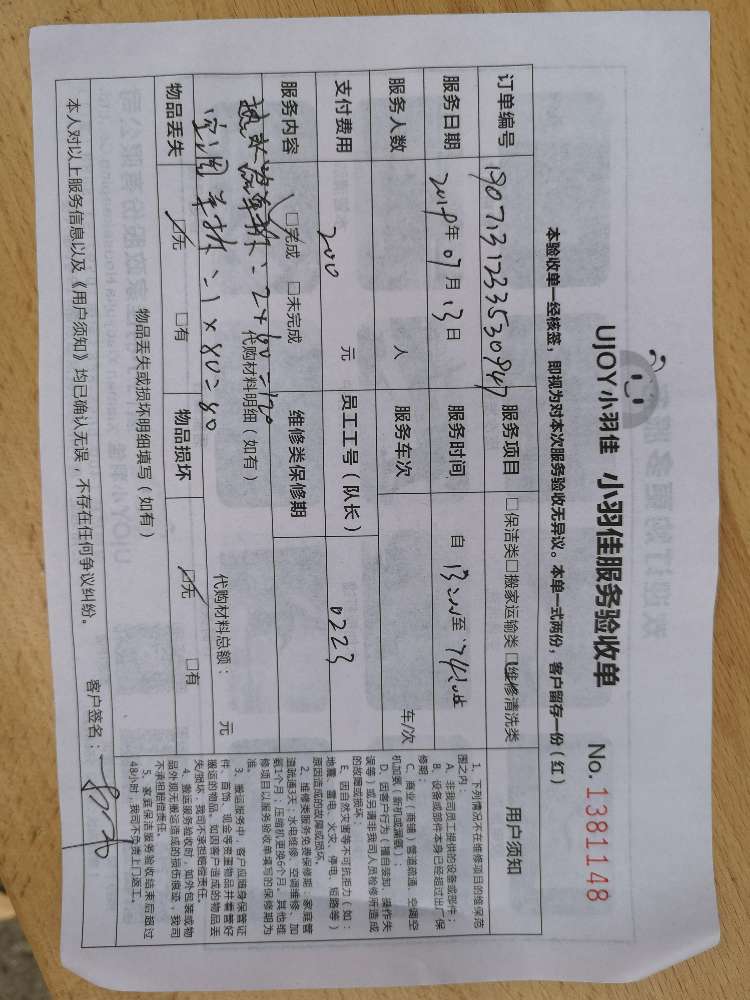 UJOY小羽佳 小羽佳服务验收单
No. 1381148
本验收单一经核签，即视为对本次服务验收无异议。本单一式两份，客户留存一份（红）
订单编号 190713123353094
服务项目 □保洁类□搬家运输类☑维修清洗类
用户须知
服务日期 2019年07月13日
服务时间 自 13:00至 14:00
服务人数 人
服务车次 车/次
支付费用 200 元
员工工号（队长） 0223
服务内容 ☑完成 □未完成
维修类保修期
代购材料明细（如有）
代购材料总额： 元
=2×60=120
空调单拆=1×80=80
物品丢失 ☑无 □有
物品损坏 ☑无 □有
物品丢失或损坏明细填写（如有）
本人对以上服务信息以及《用户须知》均已确认无误，不存在任何争议纠纷。
客户签名：
1、下列情况不在维修项目的维保范
围之内：
A、非我司员工提供的设备或部件；
B、设备或部件本身已经超过出厂保
修期；
C、商业（商铺）管道疏通、空调空
机加氨（新机或漏氨）；
D、因客户行为（擅自装卸、操作失
误等）或另请非我司人员检修所造成
的故障或损坏；
E、因自然灾害等不可抗拒力（如：
地震、雷电、火灾、停电、短路等）
原因造成的故障或损坏。
2、维修类服务免费保修期：家庭管
道疏通3天；水电维修、空调维修、加
氨1个月；压缩机更换6个月，其他维
修项目以服务验收单填写的保修期为
准。
3、搬运服务中，客户应随身保管证
件、首饰、现金等贵重物品并看管好
搬运的物品。如因客户造成的物品丢
失/损坏，我司不承担赔偿责任。
4、搬运服务验收时，如外包装或物
品外观无搬运造成的损伤痕迹，我司
不承担赔偿责任。
5、家庭保洁服务验收结束后超过
48小时，我司不负责上门返工。